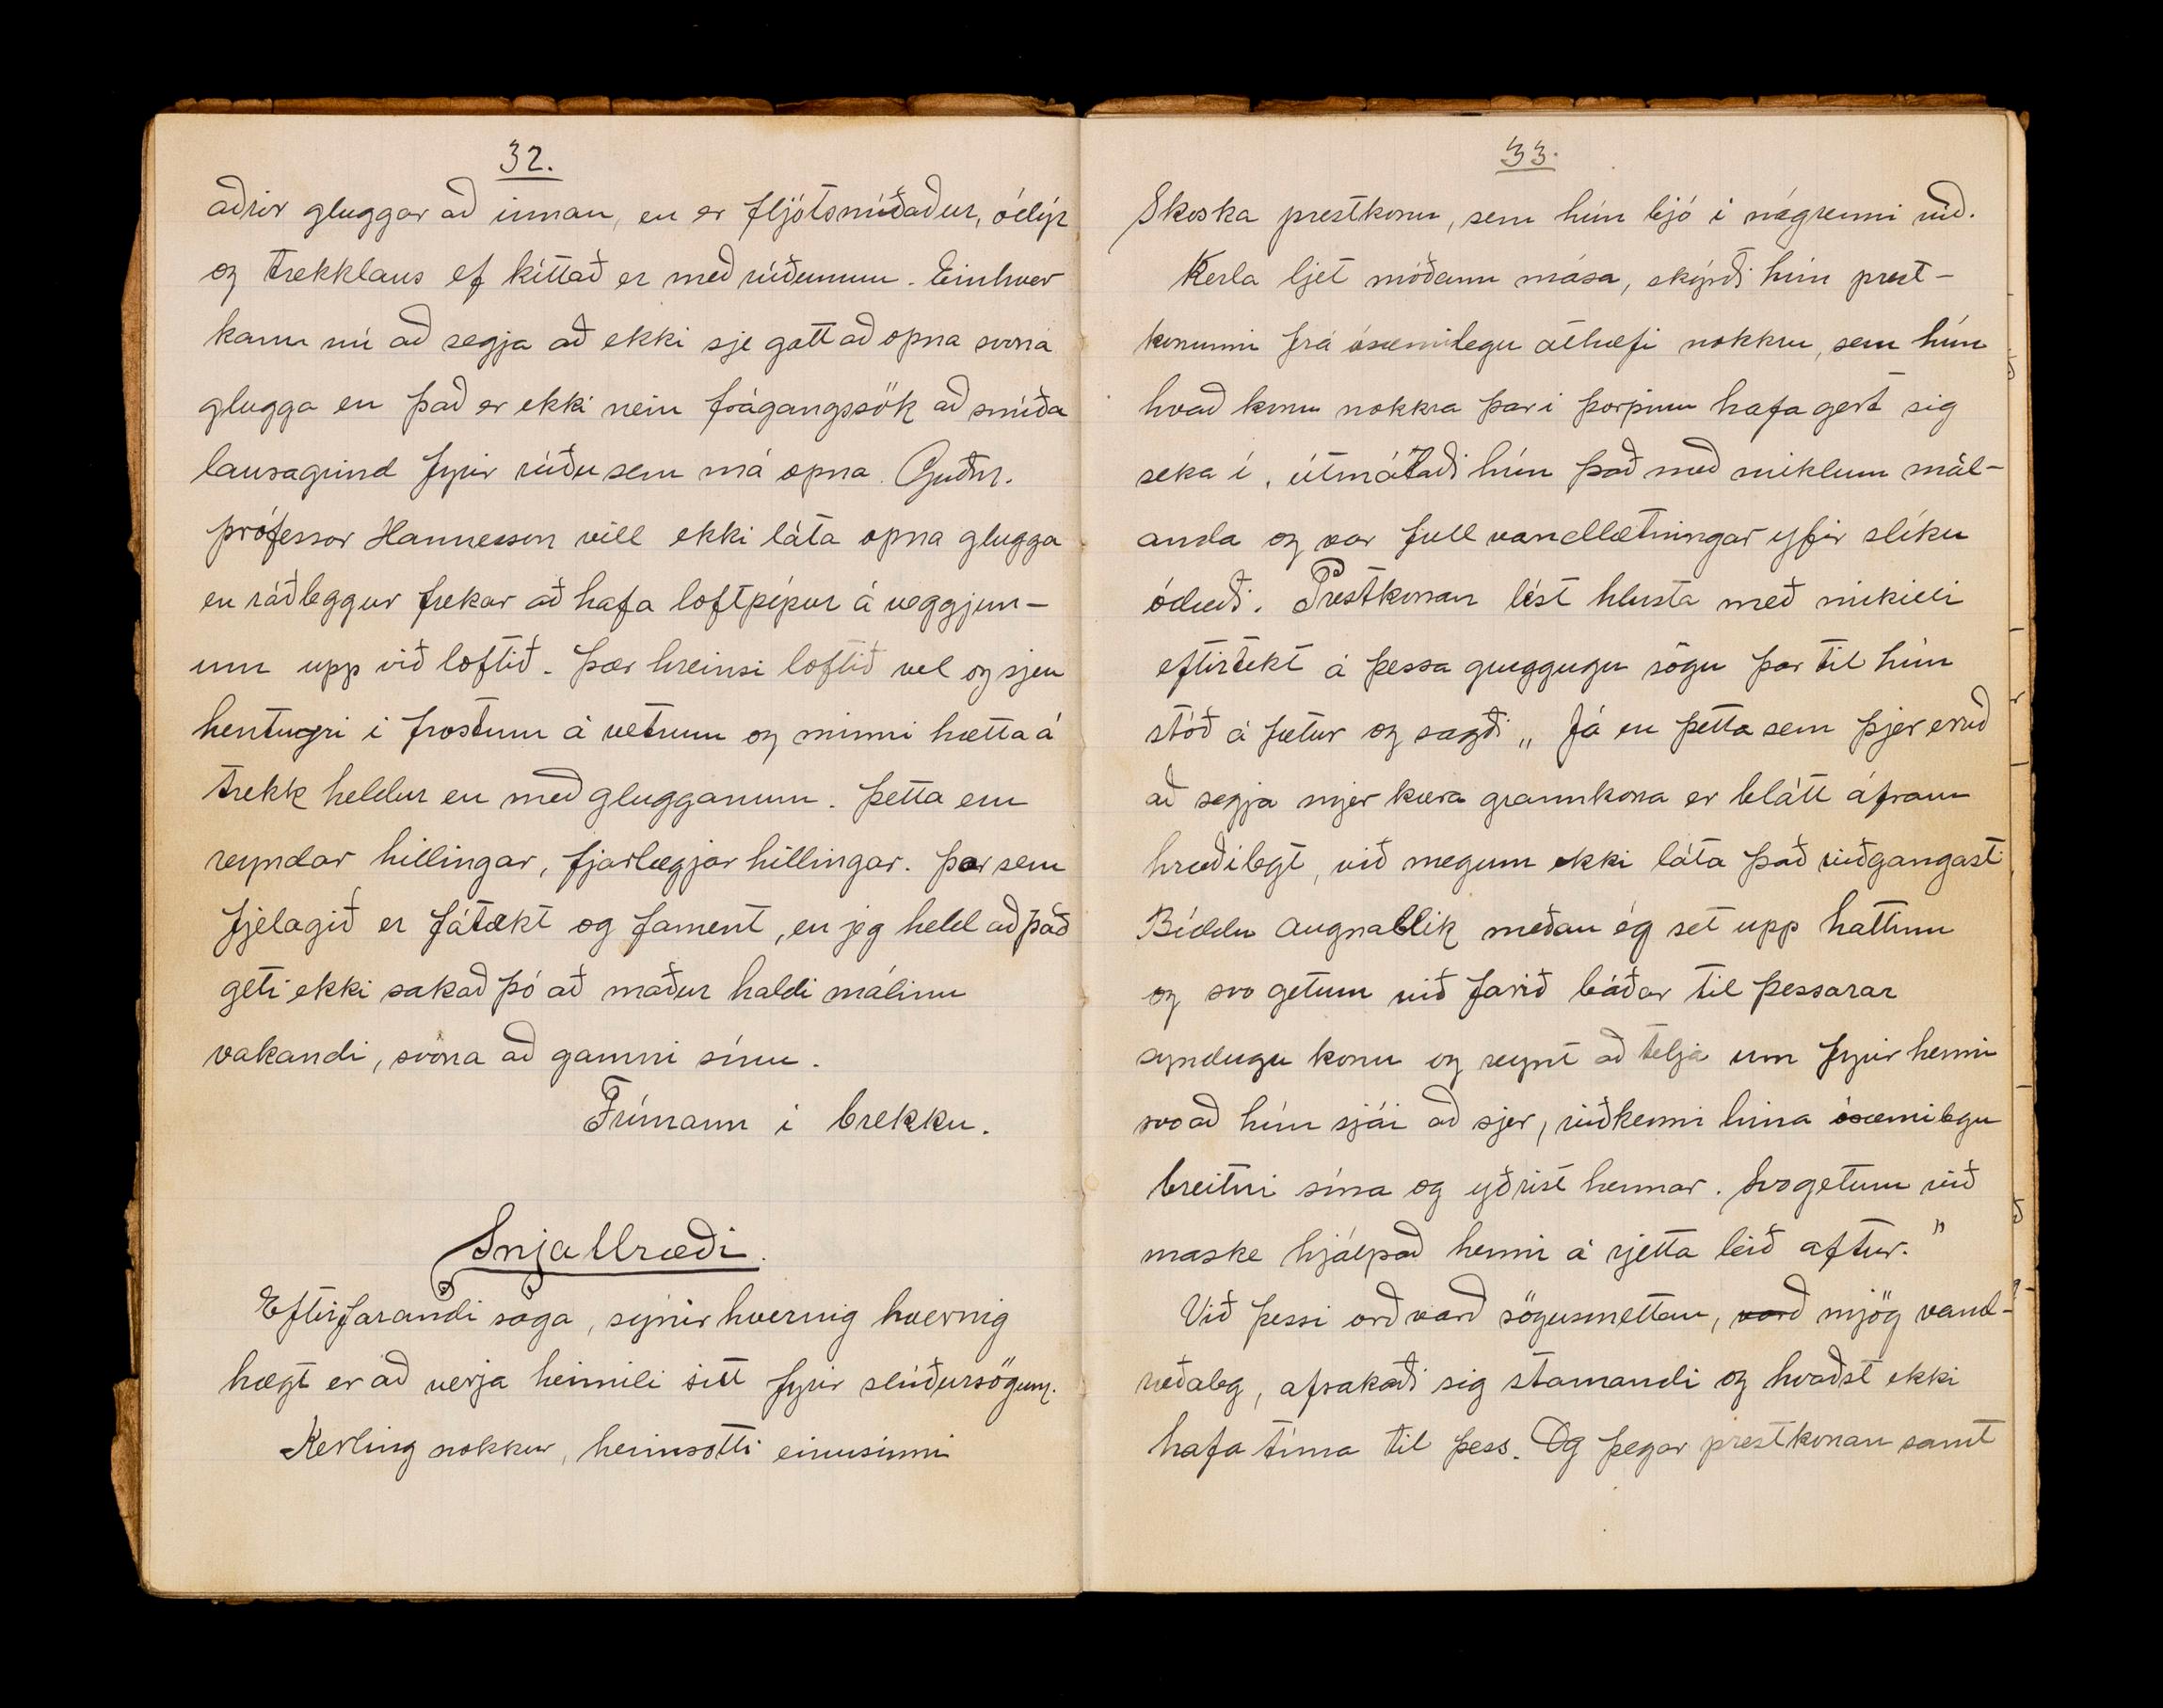 32.
aðrir gluggar að innan, en er fljótsmíðaður, ódýr
og trekklaus ef kíttað er með rúðunum. Einhver
kann nú að segja að ekki sje gott að opna svona
glugga en það er ekki nein frágangssök að smíða
lausagrind fyrir rúðu sem má opna. Guðm.
prófessor Hannesson vill ekki láta opna glugga
en ráðleggur frekar að hafa loftpípur á veggjun-
um upp við loftið. Þær hreinsi loftið vel og sjeu
hentugri i frostum á vetrum og minni hætta á
trekk heldur en með glugganum. Þetta eru
reyndar hillingar, fjarlægjar hillingar. Þar sem
fjelagið er fátækt og fament, en jeg held að það
geti ekki sakað þó að maður haldi málinu
vakandi, svona að gamni sínu.
Frímann i brekku.
Snjallræði.
Eftirfarandi saga, sýnir hvernig hvernig
hægt er að verja heimili sitt fyrir slúðursögum.
Kerling nokkur, heimsotti einusinni
33.
Skoska prestkonu, sem hún bjó i nágrenni við.
Kerla ljet móðann mása, skýrði hún prest-
konunni frá ósæmilegu athæfi nokkru, sem hún
hvað konu nokkra þar i þorpinu hafa gert sig
seka í, útmálaði hún það með miklum mál-
anda og var full vandlætningar yfir slíku
ódæði. Prestkonan lést hlusta með mikilli
eftirtekt á þessa gruggugu sögu þar til hún
stóð á fætur og sagði „ Já en þetta sem þjer eruð
að segja mjer kæra grannkona er blátt áfram
hræðilegt, við megum ekki láta það viðgangast
Bíddu augnablik meðan ég set upp hattinn
og svo getum við farið báðar til þessarar
syndugu konu og reynt að telja um fyrir henni
svo að hún sjái að sjer, viðkenni hina ósæmilegu
breitni sína og yðrist hennar. Svo getum við
maske hjálpað henni á rjetta leið aftur."
Við þessi orð varð sögusmettan, varð mjög vand-
ræðaleg, afsakaði sig stamandi og kvaðst ekki
hafa tíma til þess. Og þegar prestkonan samt